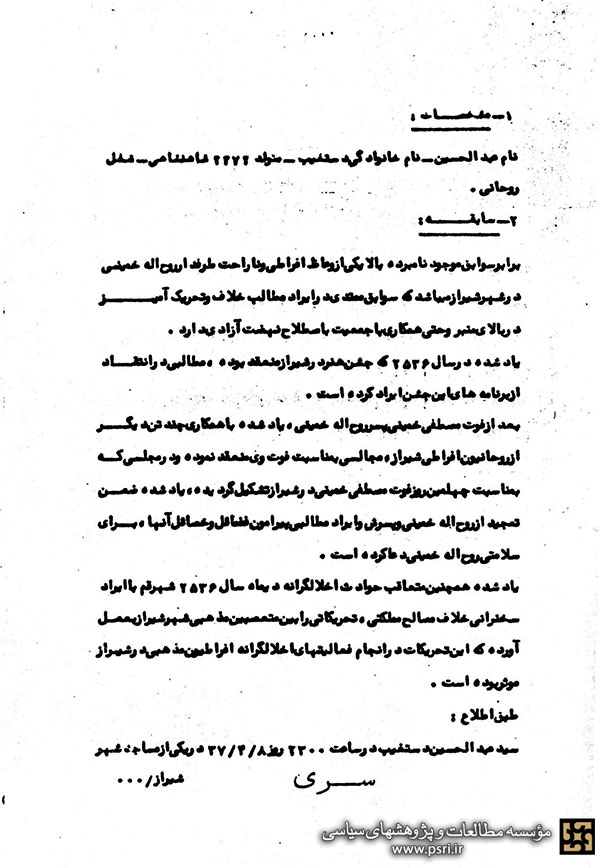 ۱ـ مشخصات :
نام عبدالحسین ـ نام خانوادگی دستغیب ـ متولد ۲۴۷۲ شاهنشاهی ـ شغل
روحانی .
۲ـ سابقه :
برابر سوابق موجود نامبرده بالا یکی از وعاظ افراطی و ناراحت طرفدار روح اله خمینی
در شهر شیراز میباشد که سوابق متعددی در ایراد مطالب خلاف و تحریک آمیز
در بالای منبر و حتی همکاری با جمعیت باصطلاح نهضت آزادی دارد .
یاد شده در سال ۲۵۳۶ که جشن هنر در شیراز منعقد بوده ، مطالبی در انتقاد
از برنامه های این جشن ایراد کرده است .
بعد از فوت مصطفی خمینی پسر روح اله خمینی ، یاد شده با همکاری چند تن دیگر
از روحانیون افراطی شیراز ، مجالسی بمناسبت فوت وی منعقد نموده و در مجلسی که
بمناسبت چهلمین روز فوت مصطفی خمینی در شیراز تشکیل گردیده ، یاد شده ضمن
تمجید از روح اله خمینی و پسرش و ایراد مطالبی پیرامون فضائل و خصائل آنها ، برای
سلامتی روح اله خمینی دعا کرده است .
یاد شده همچنین متعاقب حوادث اخلالگرانه دیماه سال ۲۵۳۶ شهر قم با ایراد
سخنرانی خلاف مصالح مملکتی ، تحریکاتی را بین متعصبین مذهبی شهر شیراز بعمل
آورده که این تحریکات در انجام فعالیتهای اخلالگرانه افراطیون مذهبی در شیراز
موثر بوده است .
طبق اطلاع :
سید عبدالحسین دستغیب در ساعت ۲۳۰۰ روز ۳۷/۴/۸ در یکی از مساجد شهر
شیراز/۰۰۰
سری
مؤسسه مطالعات و پژوهشهای سیاسی
www.psri.ir